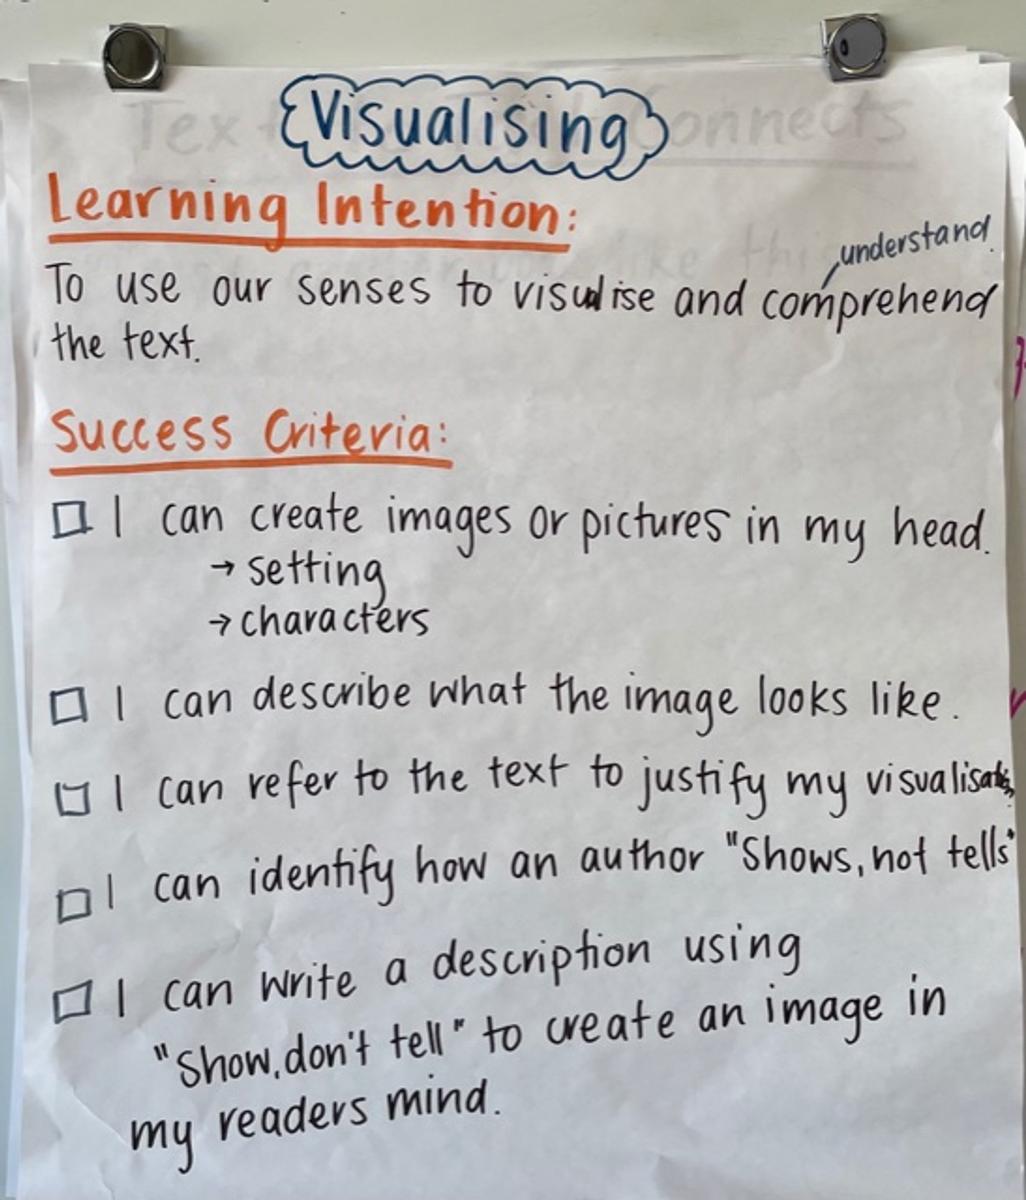 Visualising
Learning Intention:
understand
To use our senses to visulise and comprehend
the text.
Success Criteria:
I can create images or pictures in my head.
→ setting
→ characters
I can describe what the image looks like.
I can refer to the text to justify my
I can identify how an author "Shows, not tells"
I can write a description using
"Show, don't tell" to create an image in
my readers mind.